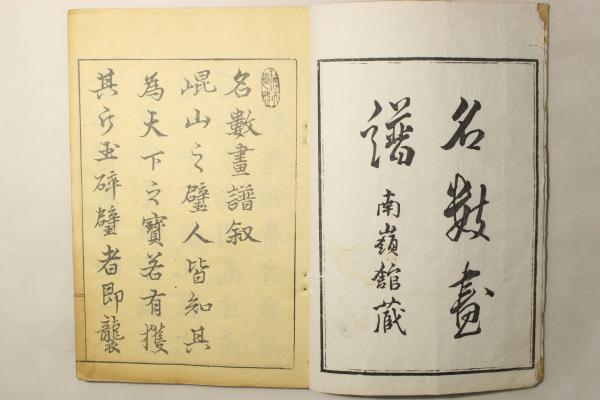 名數畫
譜
南嶺舘蔵
名數畫譜叙
崐山之璧人皆知其
為天下之寶若有獲
其夜玉碎璧者即襲